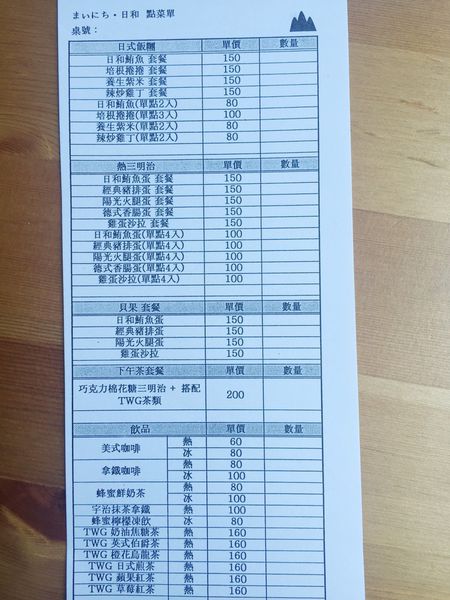 まいにち・日和 點菜單
桌號：
日式飯糰 單價 數量
日和鮪魚 套餐 150
培根捲捲 套餐 150
養生紫米 套餐 150
辣炒雞丁 套餐 150
日和鮪魚(單點2入) 80
培根捲捲(單點3入) 100
養生紫米(單點2入) 80
辣炒雞丁(單點2入) 80
熱三明治 單價 數量
日和鮪魚蛋 套餐 150
經典豬排蛋 套餐 150
陽光火腿蛋 套餐 150
德式香腸蛋 套餐 150
雞蛋沙拉 套餐 150
日和鮪魚蛋(單點4入) 100
經典豬排蛋(單點4入) 100
陽光火腿蛋(單點4入) 100
德式香腸蛋(單點4入) 100
雞蛋沙拉(單點4入) 100
貝果 套餐 單價 數量
日和鮪魚蛋 150
經典豬排蛋 150
陽光火腿蛋 150
雞蛋沙拉 150
下午茶套餐 單價 數量
巧克力棉花糖三明治 + 搭配
TWG茶類 200
飲品 單價 數量
美式咖啡 熱 60
冰 80
拿鐵咖啡 熱 80
冰 100
蜂蜜鮮奶茶 熱 80
冰 100
宇治抹茶拿鐵 熱 100
蜂蜜檸檬凍飲 冰 80
TWG 奶油焦糖茶 熱 160
TWG 英式伯爵茶 熱 160
TWG 橙花烏龍茶 熱 160
TWG 日式煎茶 熱 160
TWG 蘋果紅茶 熱 160
TWG 草莓紅茶 熱 160